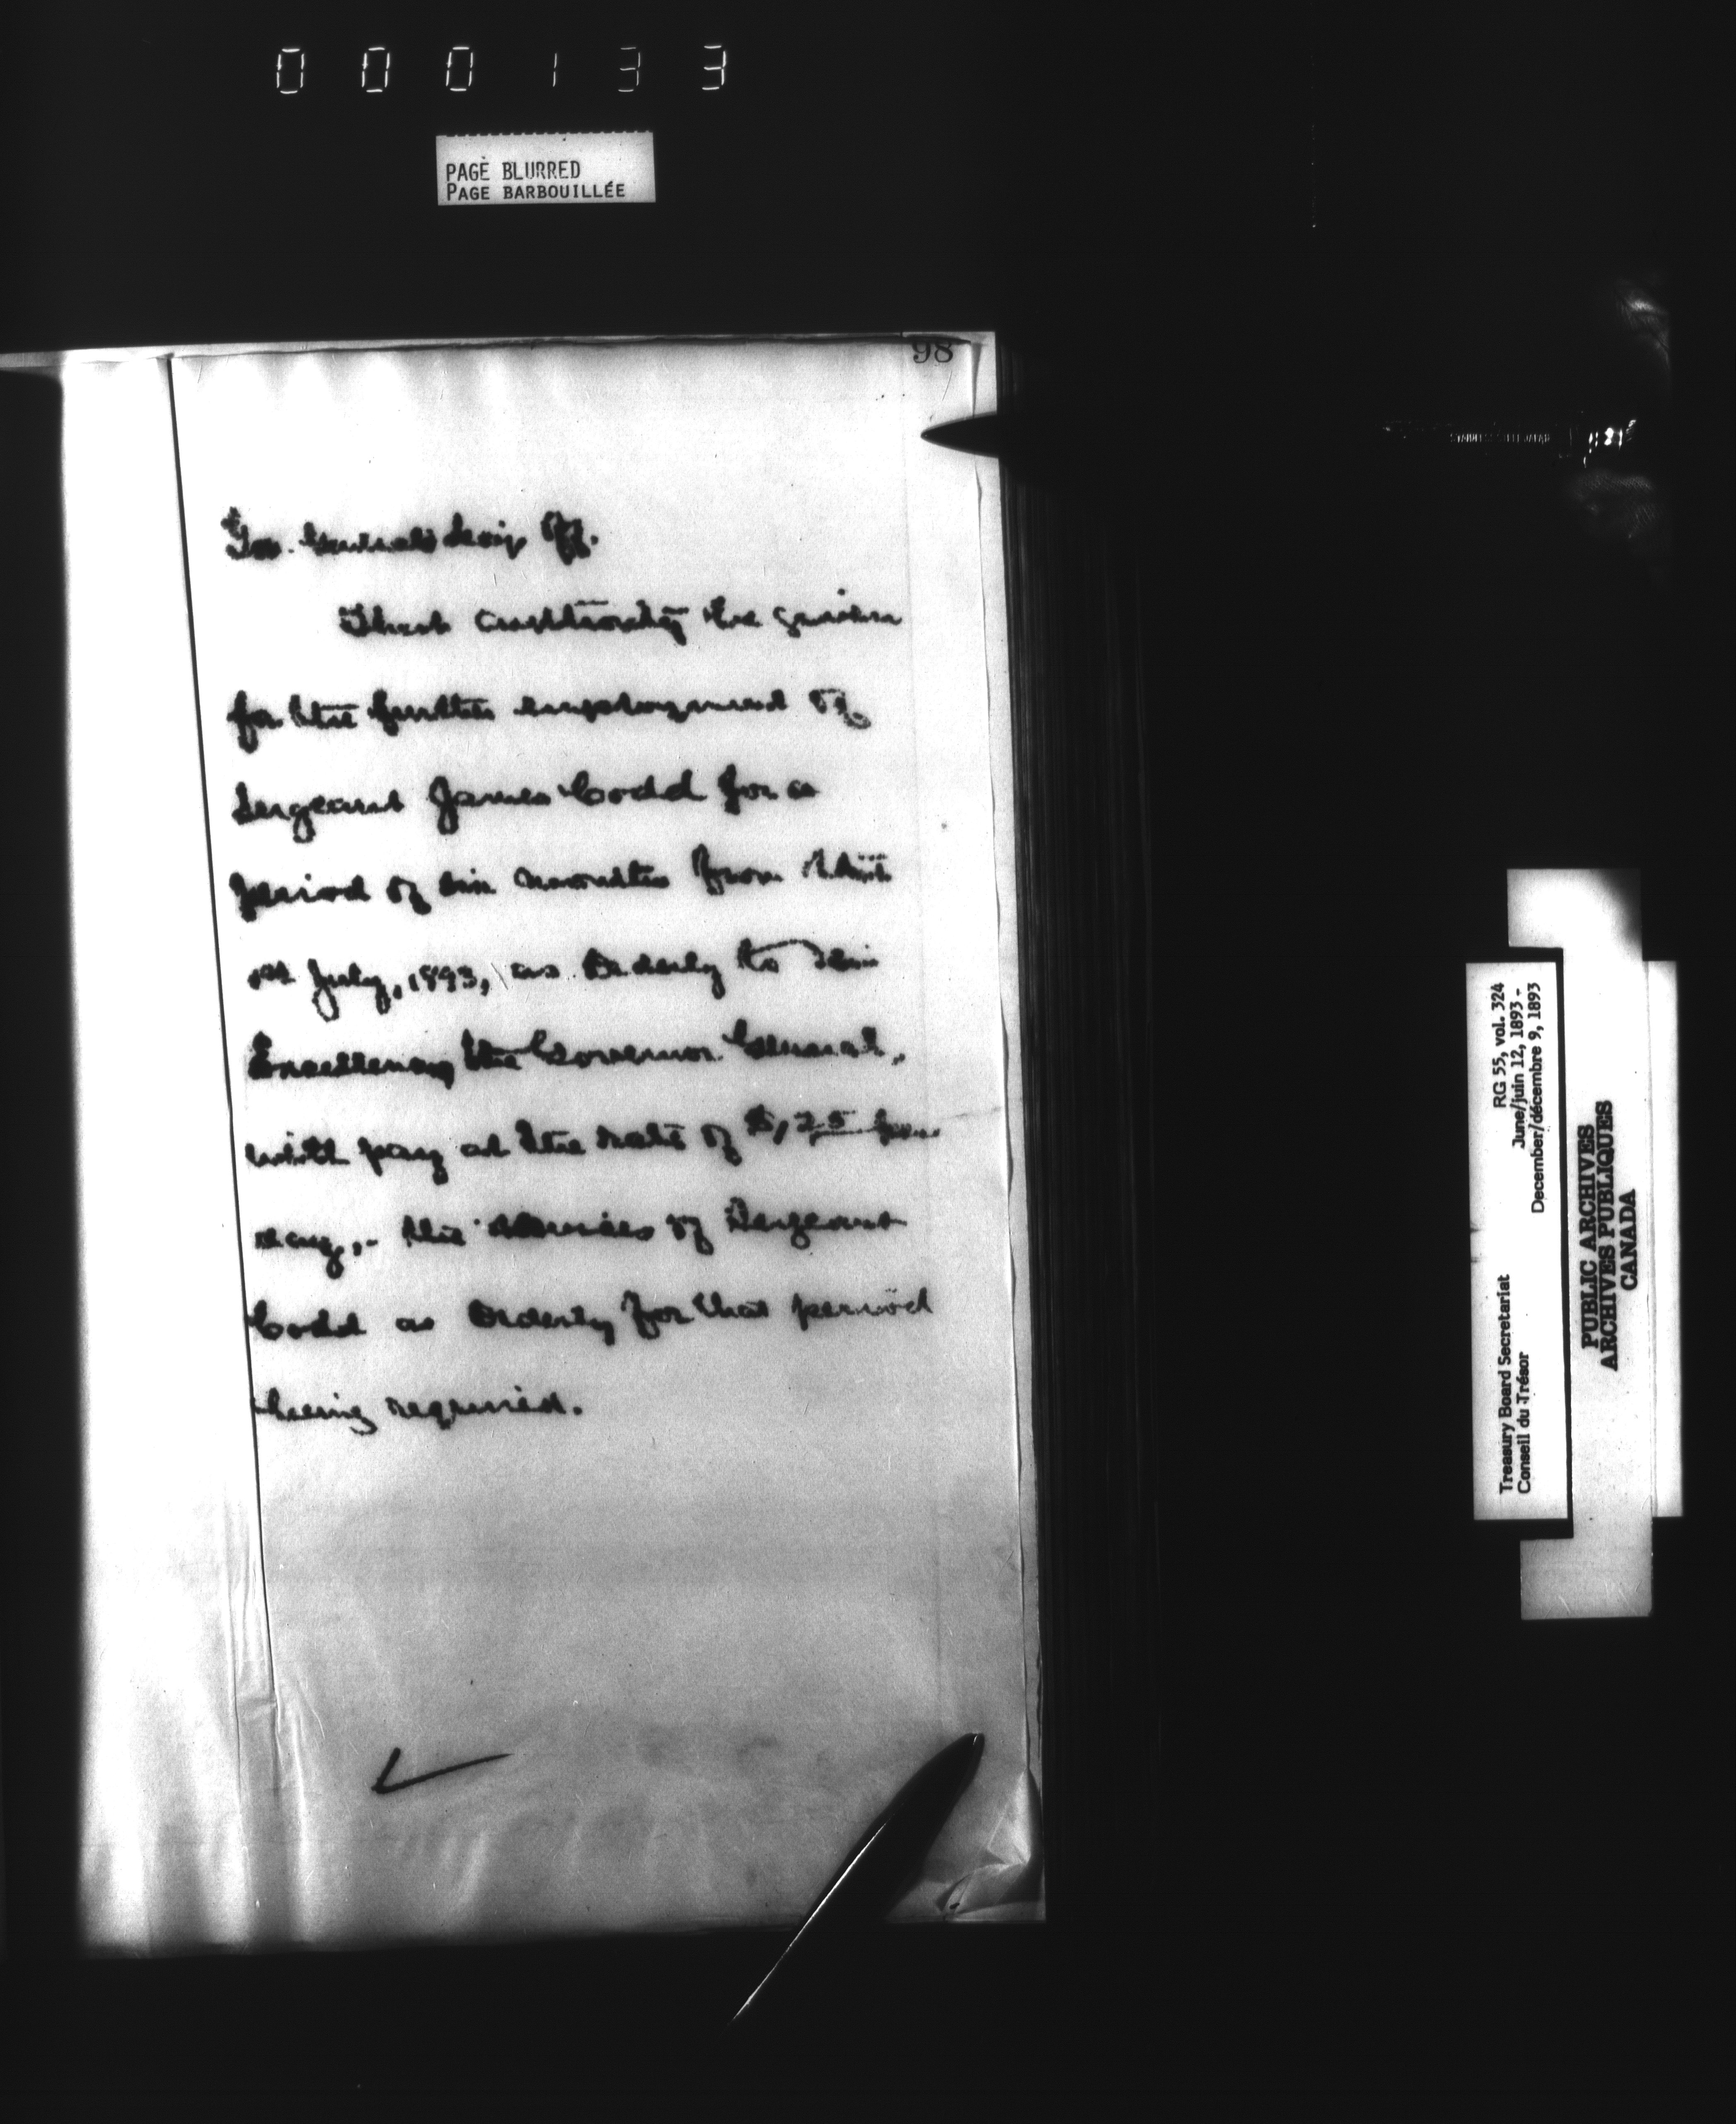 000133
PAGE BLURRED
PAGE BARBOUILLÉE
98
Gov. General's Secy's Off.
That authority be given
for the further employment of
Sergeant James Codd for a
period of six months from the
1st July, 1893, as Orderly to His
Excellency the Governor General,
with pay at the rate of $1,25 per
day,- the services of Sergeant
Codd as Orderly for that period
being required.
RG 55, vol. 324
June/juin 12, 1893 -
December/décembre 9, 1893
Treasury Board Secretariat
Conseil du Trésor
PUBLIC ARCHIVES
ARCHIVES PUBLIQUES
CANADA